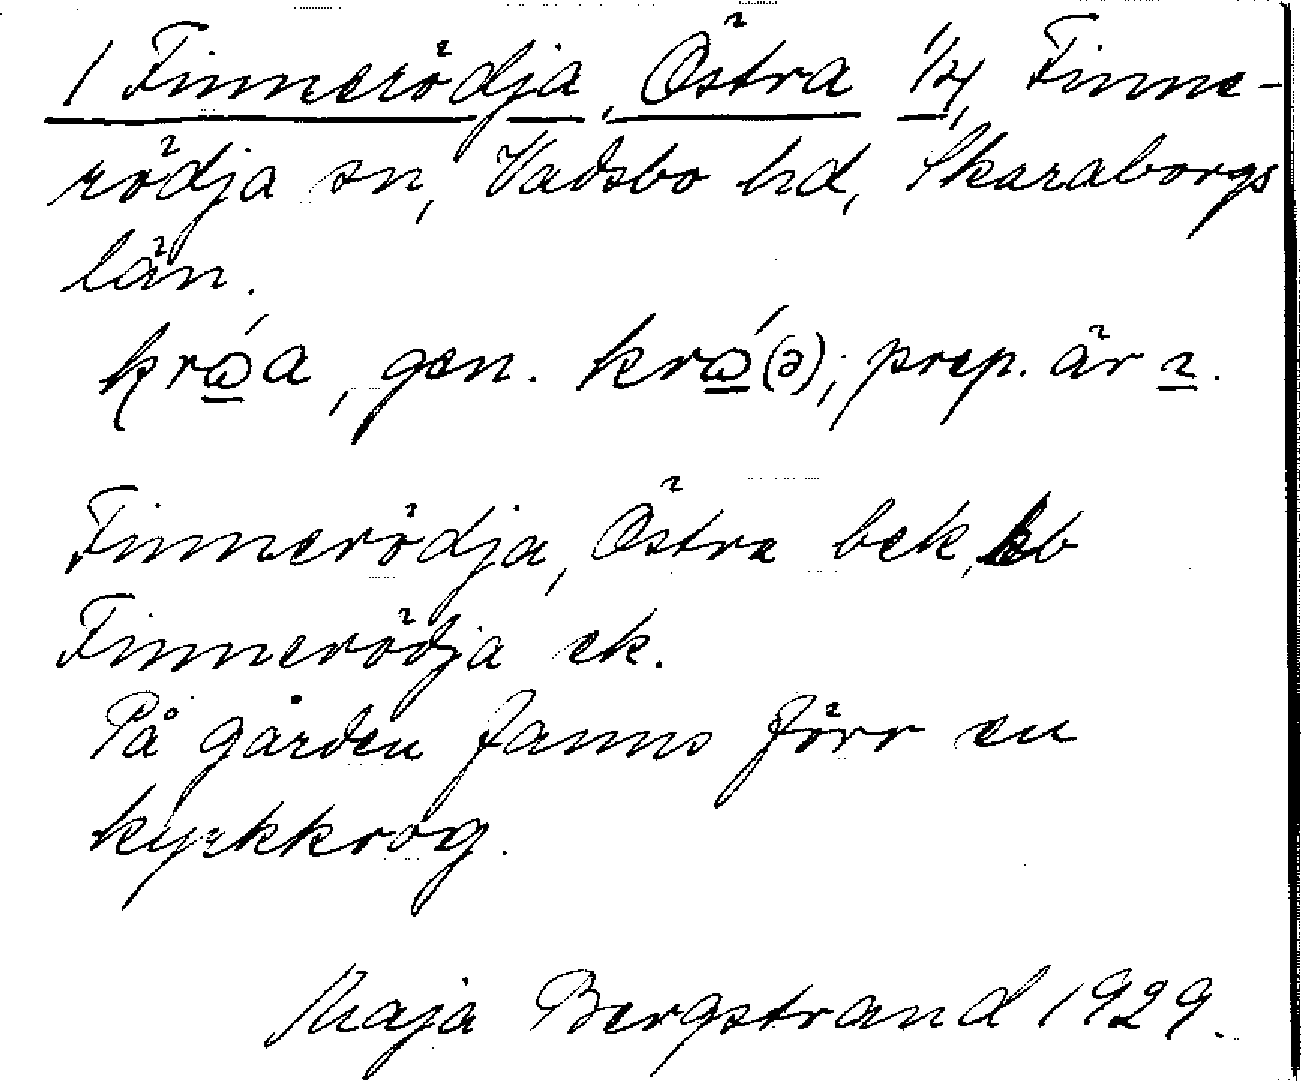 1 Finnerödja, Östra 1/4, Finne-
rödja sn, Vadsbo hd, Skaraborgs
län.
gen. prep. är ı.
Finnerödja, Östra bek, kb
Finnerödja ek.
På gården fanns förr en
kyrkkrog.
Maja Bergstrand 1929.